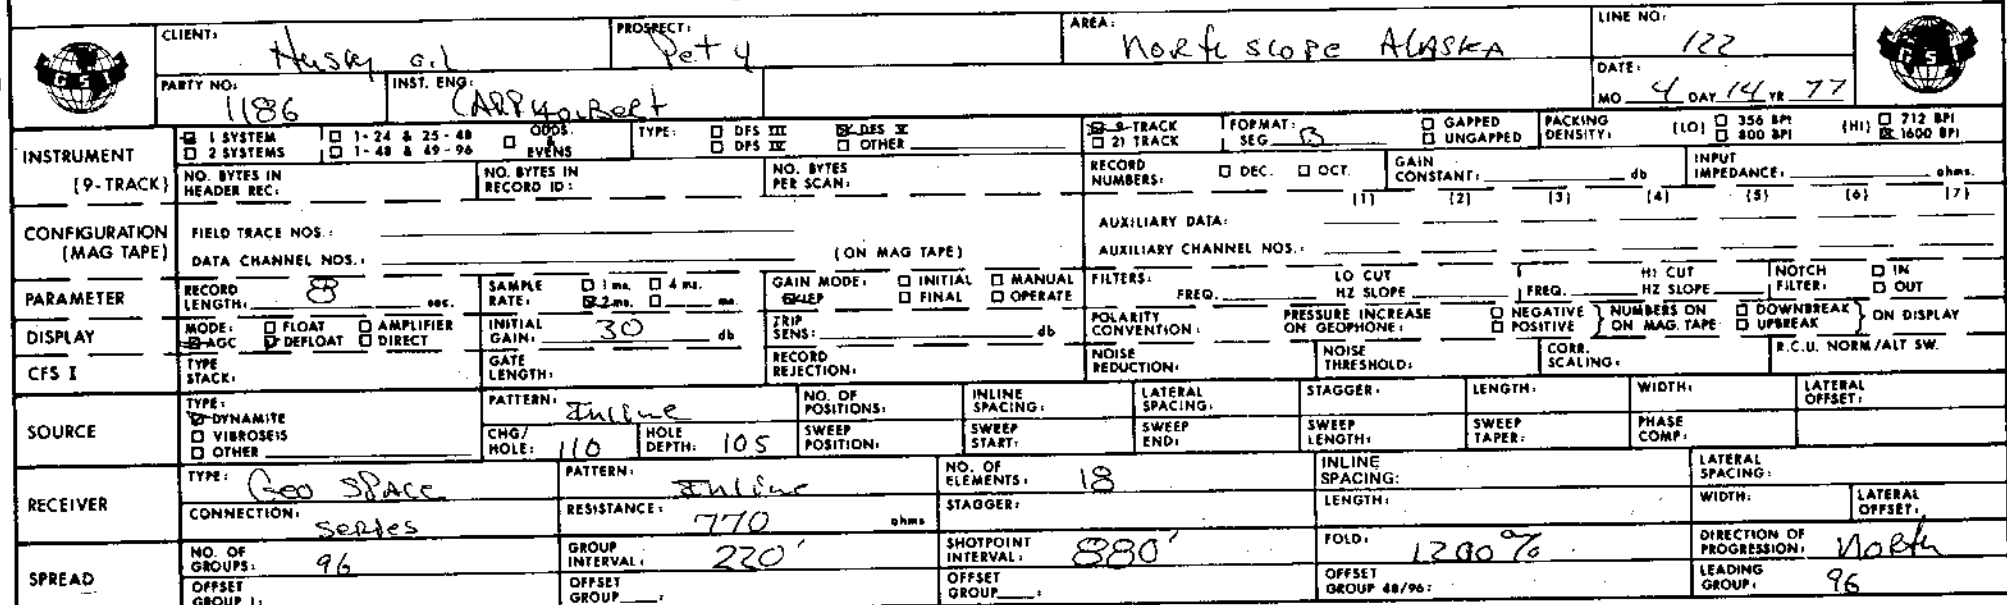 CLIENT: Husky oil PROSPECT: Pet 4 AREA: North slope ALASKA LINE NO: 122
GSI
PARTY NO: 1186 INST. ENG: DATE: MO 4 DAY 14 YR 77
GSI
INSTRUMENT (9-TRACK)
☒ 1 SYSTEM ☐ 1-24 & 25-48 ☐ ODDS & EVENS TYPE: ☐ DFS III ☒ DFS V ☒ 9-TRACK FORMAT: SEG B ☐ GAPPED PACKING DENSITY: (LO) ☐ 356 BPI (HI) ☐ 712 BPI
☐ 2 SYSTEMS ☐ 1-48 & 49-96 ☐ DFS IV ☐ OTHER ☐ 21 TRACK ☐ UNGAPPED ☐ 800 BPI ☒ 1600 BPI
NO. BYTES IN HEADER REC: NO. BYTES IN RECORD ID: NO. BYTES PER SCAN: RECORD NUMBERS: ☐ DEC. ☐ OCT. GAIN CONSTANT: db INPUT IMPEDANCE: ohms.
CONFIGURATION (MAG TAPE)
(1) (2) (3) (4) (5) (6) (7)
FIELD TRACE NOS.: AUXILIARY DATA:
DATA CHANNEL NOS.: (ON MAG TAPE) AUXILIARY CHANNEL NOS.:
PARAMETER
RECORD LENGTH: 8 sec. SAMPLE RATE: ☐ 1 ms. ☐ 4 ms. ☒ 2 ms. ☐ ms. GAIN MODE: ☐ INITIAL ☐ MANUAL ☒ IFP ☐ FINAL ☐ OPERATE FILTERS: FREQ. LO CUT HZ SLOPE FREQ. HI CUT HZ SLOPE NOTCH FILTER: ☐ IN ☐ OUT
DISPLAY
MODE: ☐ FLOAT ☐ AMPLIFIER ☒ AGC ☒ DEFLOAT ☐ DIRECT INITIAL GAIN: 30 db TRIP SENS: db POLARITY CONVENTION: PRESSURE INCREASE ON GEOPHONE: ☐ NEGATIVE ☐ POSITIVE } NUMBERS ON ON MAG. TAPE ☐ DOWNBREAK ☐ UPBREAK } ON DISPLAY
CFS I
TYPE STACK: GATE LENGTH: RECORD REJECTION: NOISE REDUCTION: NOISE THRESHOLD: CORR. SCALING: R.C.U. NORM/ALT SW.
SOURCE
TYPE: ☒ DYNAMITE ☐ VIBROSEIS ☐ OTHER
PATTERN: Inline NO. OF POSITIONS: INLINE SPACING: LATERAL SPACING: STAGGER: LENGTH: WIDTH: LATERAL OFFSET:
CHG/HOLE: 110 HOLE DEPTH: 105 SWEEP POSITION: SWEEP START: SWEEP END: SWEEP LENGTH: SWEEP TAPER: PHASE COMP:
RECEIVER
TYPE: Geo SPACE PATTERN: Inline NO. OF ELEMENTS: 18 INLINE SPACING: LATERAL SPACING:
CONNECTION: series RESISTANCE: 770 ohms STAGGER: LENGTH: WIDTH: LATERAL OFFSET:
SPREAD
NO. OF GROUPS: 96 GROUP INTERVAL: 220' SHOTPOINT INTERVAL: 880' FOLD: 1200% DIRECTION OF PROGRESSION: North
OFFSET GROUP 1: OFFSET GROUP ___: OFFSET GROUP ___: OFFSET GROUP 48/96: LEADING GROUP: 96